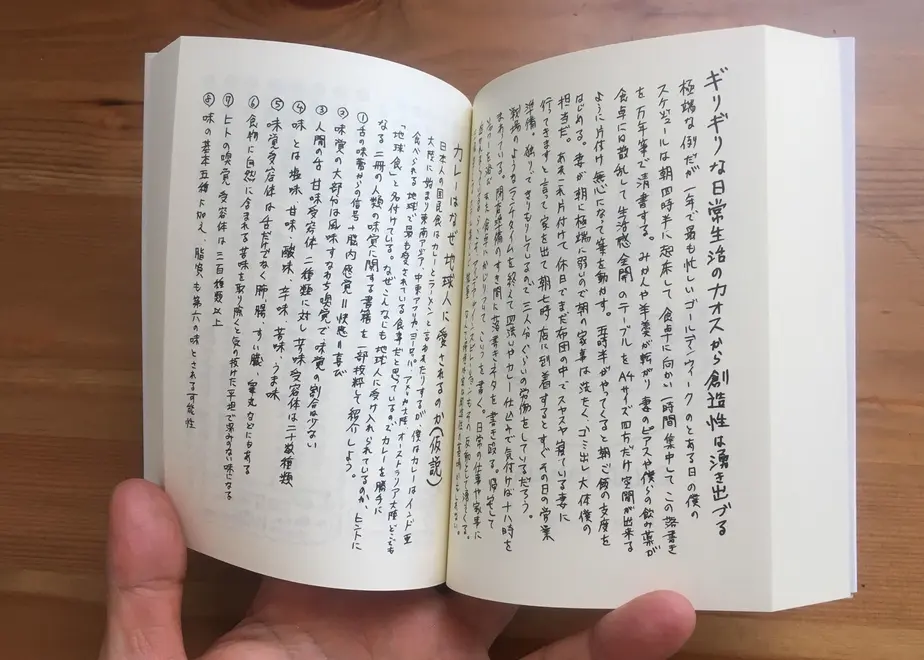 ギリギリな日常生活のカオスから創造性は湧き出づる
極端な例だが一年で最も忙しいゴールデンウィークのとある日の僕の
スケジュールは朝四時半に起床して、食卓に向かい一時間集中してこの落書き
を万年筆で清書する。みかんや羊羹が転がり妻のピアスや僕らの飲み薬が
食卓には散乱して生活感全開のテーブルをA4サイズ四方だけ空間が出来る
ように片付け無心になって筆を動かす。五時半がやってくると朝ご飯の支度を
はじめる。妻が朝に極端に弱いので朝の家事は洗たく、ゴミ出し大体僕の
担当だ。あれこれ片付けて、休日でまだ布団の中でスヤスヤ寝ている妻に
行ってきますと言って家を出て朝七時店に到着するとすぐその日の営業
準備。独りできりもりしているので三人分ぐらいの労働をしているだろう。
戦場のようなランチタイムを終えて皿洗いやカレー仕込みで気付けば十八時を
まわっている。閉店準備のすき間に落書きネタを書き殴る。帰宅して
カレーはなぜ地球人に愛されるのか(仮説)
日本人の国民食はカレーとラーメンと言われたりするが、僕はカレーはインド亜
大陸に始まり東南アジア、中東アフリカ、ヨーロッパ、アメリカ大陸、オーストラリア大陸どこでも
食べられる地球で最も愛されている食事だと思っているのでカレーを勝手に
「地球食」と名付けている。なぜこんなにも地球人に受け入れられているのか、ヒントに
なる二冊の人類の味覚に関する書籍を一部抜粋して紹介しよう。
①舌の味蕾からの信号+脳内感覚=快感=喜び
②味覚の大部分は風味すなわち嗅覚で味覚の割合は少ない
③人間の舌 甘味受容体 二種類に対し苦味受容体は二十数種類
④味とは塩味 甘味 酸味 辛味 苦味 うま味
⑤味覚受容体は舌だけでなく肺、腸、すい臓、睾丸などにもある
⑥食物に自然に含まれる苦味を取り除くと気の抜けた平坦で深みのない味になる
⑦ヒトの嗅覚受容体は三百種類以上
⑧味の基本五種に加え、脂質も第六の味とされる可能性